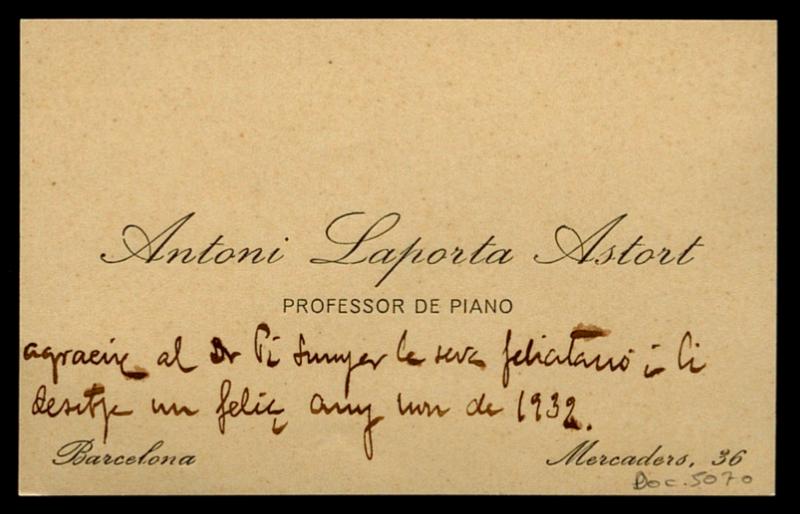 Antoni Laporta Astort
PROFESSOR DE PIANO
agraeix al Dr Pi Sunyer la seva felicitació i li
desitja un feliç any nou de 1932.
Barcelona
Mercaders, 36
Doc. 5070